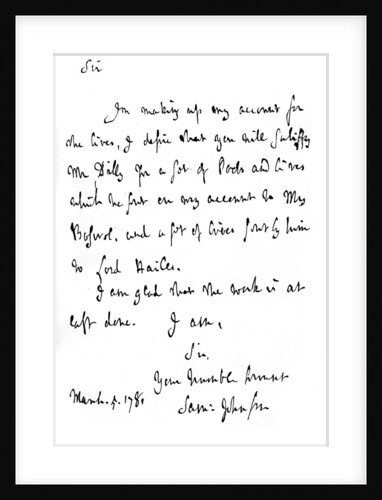 Sir
In making up my account for
the Lives, I desire that you will satisfy
Mr Dilly for a set of Poets and Lives
which he sent on my account to Mr
Boswel, and a set of Lives sent by him
to Lord Hailes.
I am glad that the work is at
last done. I am,
Sir,
Your humble servant
March. 5. 1781
Sam: Johnson